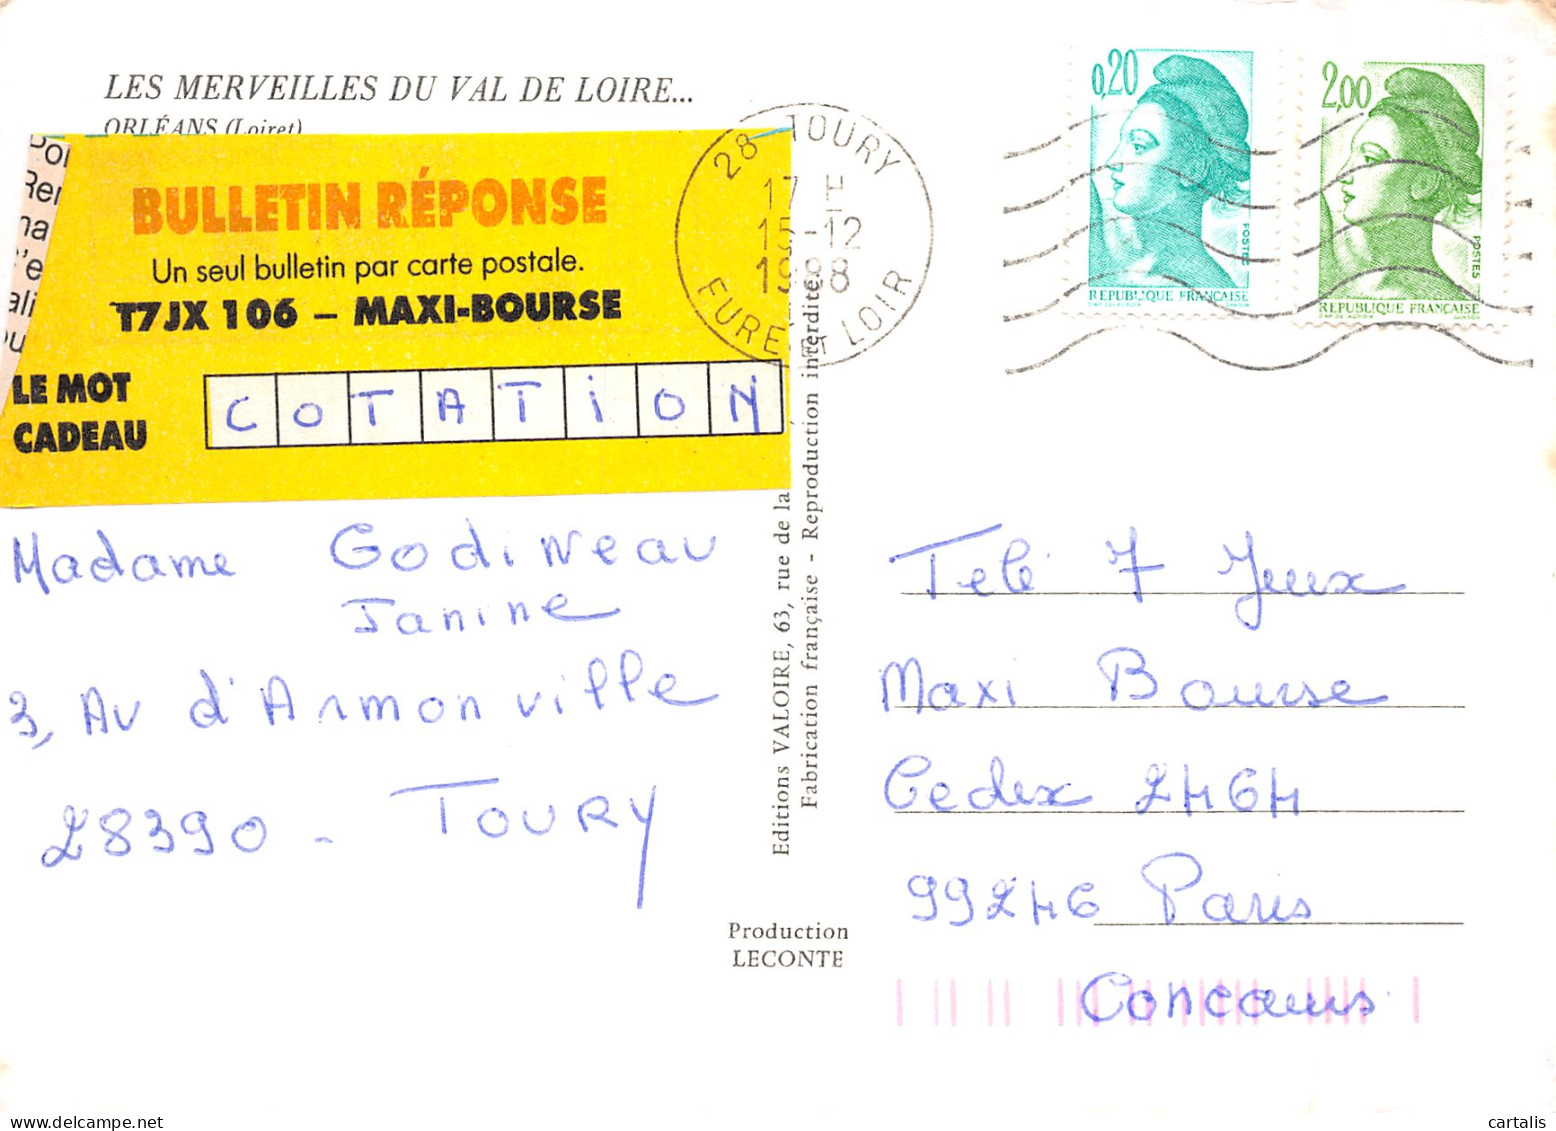 LES MERVEILLES DU VAL DE LOIRE...
ORLÉANS (Loiret)
BULLETIN RÉPONSE
Un seul bulletin par carte postale.
T7JX 106 – MAXI-BOURSE
LE MOT
CADEAU
COTATION
28 TOURY
17 H
15-12
1988
EURE-ET LOIR
0,20
POSTES
REPUBLIQUE FRANÇAISE
2,00
POSTES
REPUBLIQUE FRANÇAISE
Madame Godineau
Janine
3, Av d'Armonville
28390 - TOURY
Editions VALOIRE, 63, rue de la
Fabrication française - Reproduction interdite
Production
LECONTE
Telé 7 Jeux
Maxi Bourse
Cedex 2464
99246 Paris
Concours
cartalis